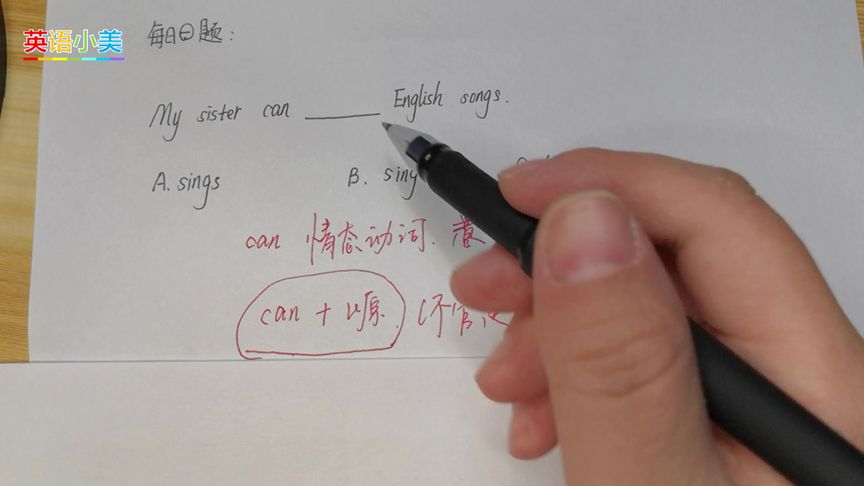 英语小美
每日一题:
My sister can ______ English songs.
A. sings B. sing
can 情态动词. 意
can + v原. (不管